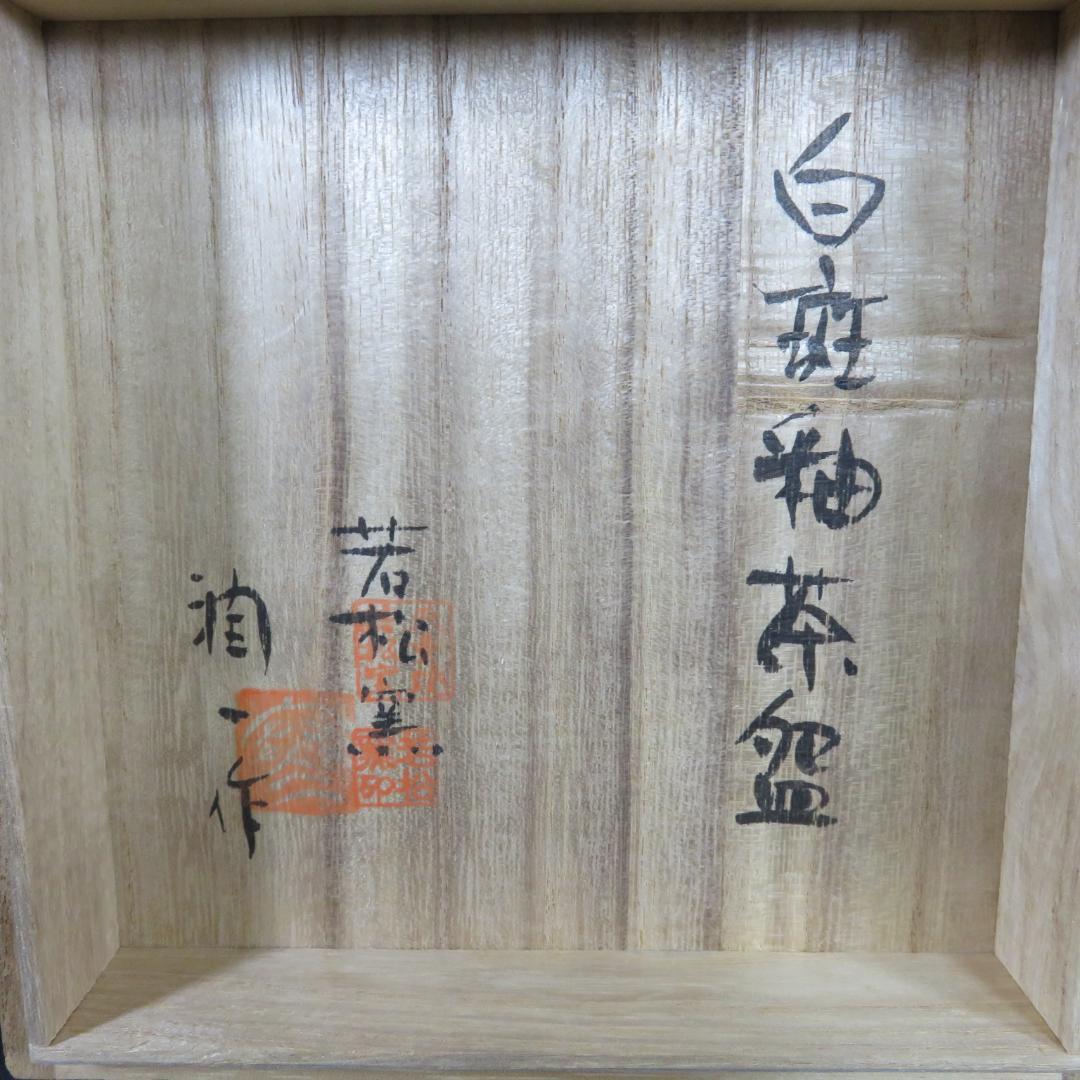 白斑釉茶盌
若松窯
潤一作